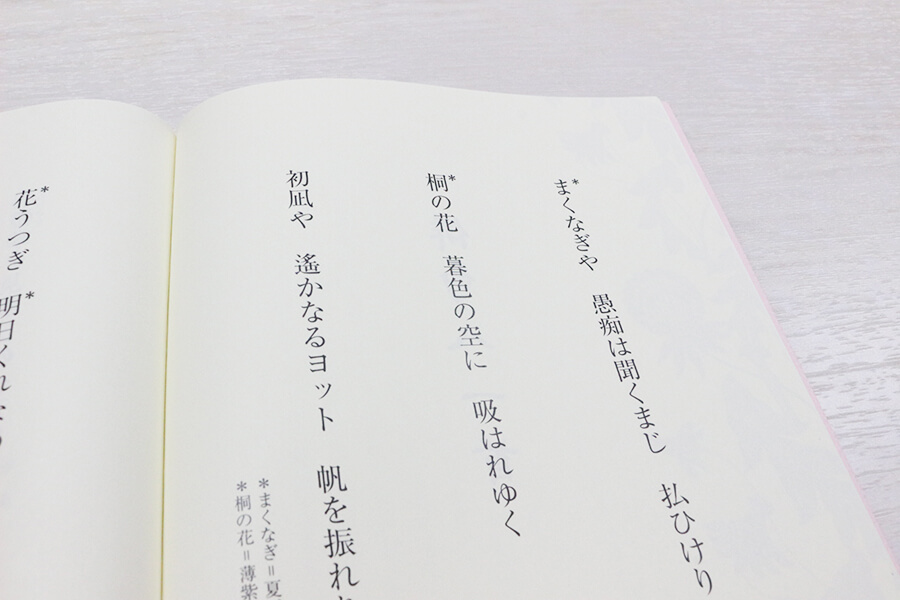 *まくなぎや　愚痴は聞くまじ　払ひけり
*桐の花　暮色の空に　吸はれゆく
初凪や　遙かなるヨット　帆を振れ
*まくなぎ=夏
*桐の花=薄紫
*花うつぎ　*明日くれ